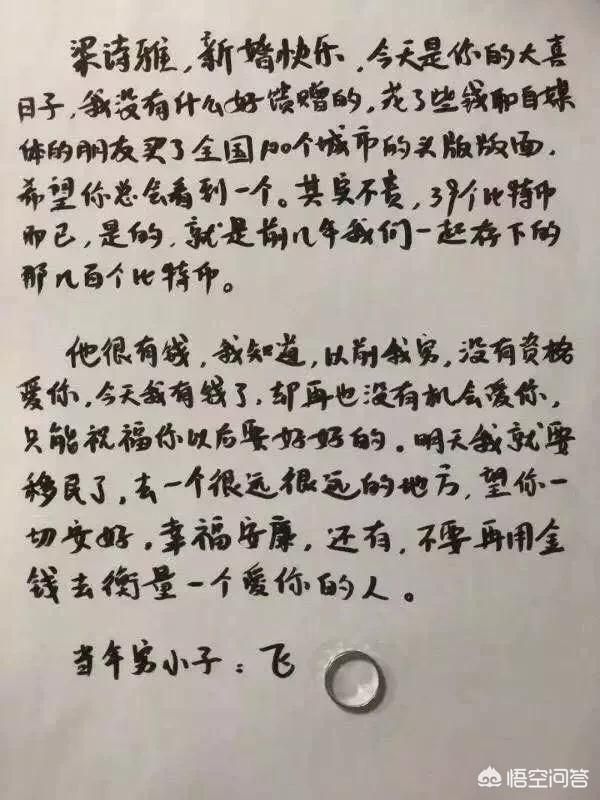 梁诗雅,新婚快乐,今天是你的大喜
日子,我没有什么好馈赠的,花了些钱和自媒
体的朋友买了全国100个城市的头版版面,
希望你总会看到一个。其实不贵,39个比特币
而已,是的,就是前几年我们一起存下的
那几百个比特币。
他很有钱,我知道,以前我穷,没有资格
爱你,今天我有钱了,却再也没有机会爱你,
只能祝福你以后要好好的。明天我就要
移民了,去一个很远很远的地方,望你一
切安好,幸福安康,还有,不要再用金
钱去衡量一个爱你的人。
当年穷小子:飞
悟空问答